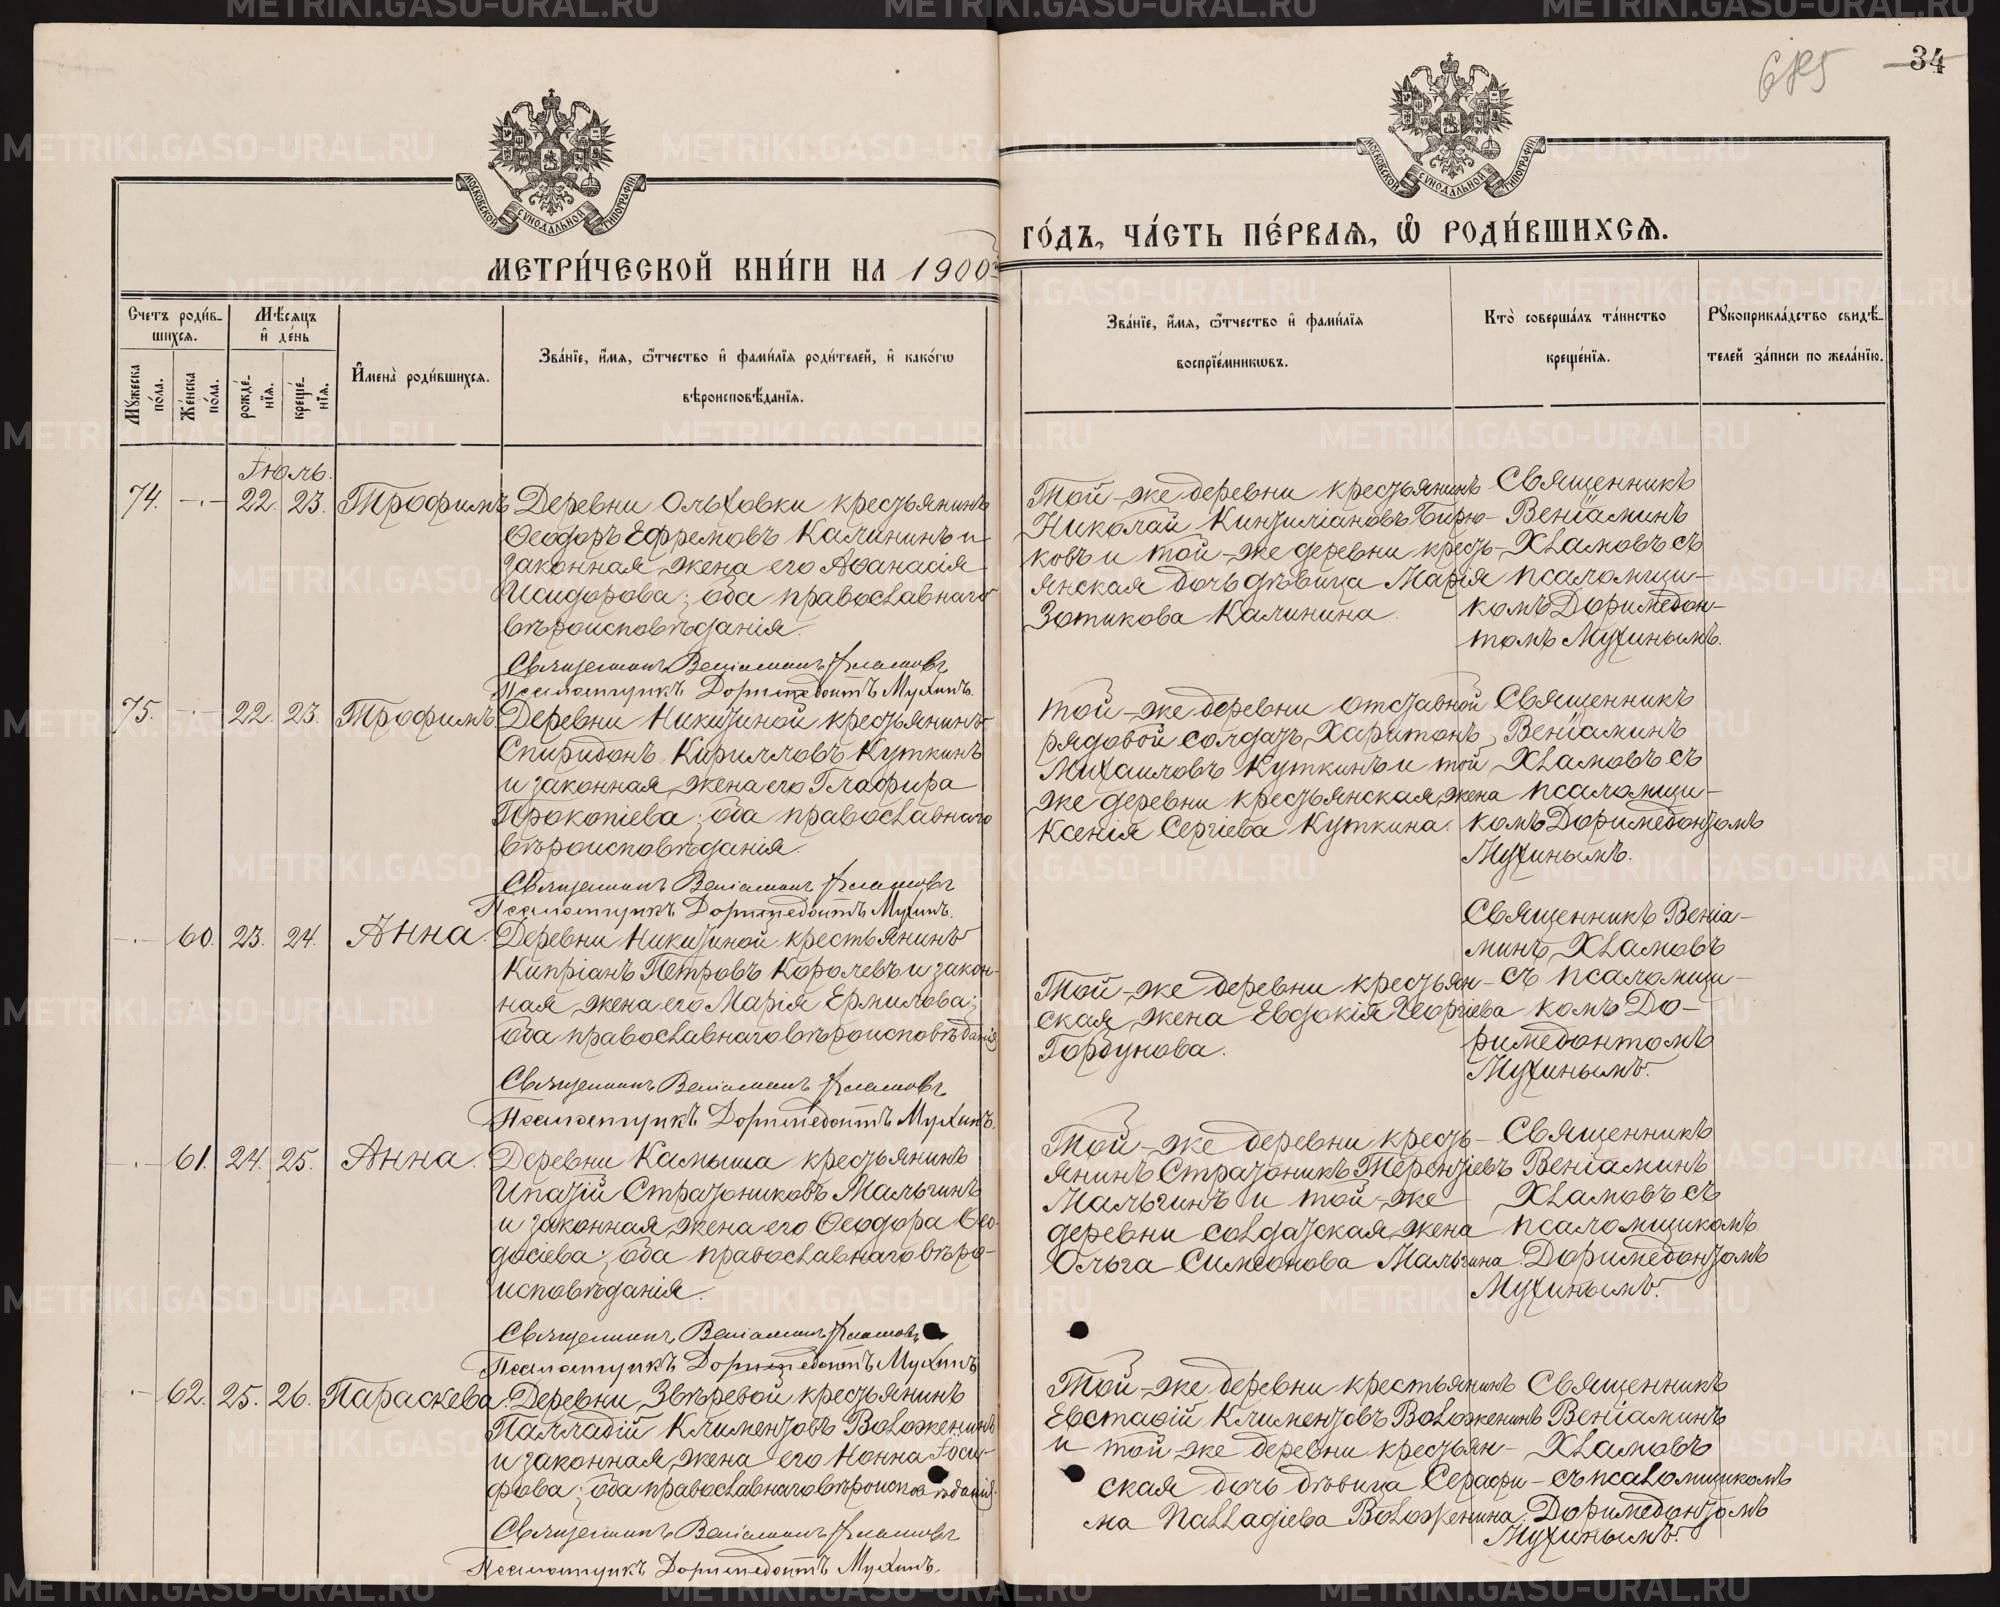 685
34
МОСКОВСКОЙ СѴНОДАЛЬНОЙ ТИПОГРАФІИ
МОСКОВСКОЙ СѴНОДАЛЬНОЙ ТИПОГРАФІИ
МЕТРИ́ЧЕСКОЙ КНИ́ГИ НА 1900й
ГО́ДЪ, ЧА́СТЬ ПЕ́РВАѦ, Ѽ РОДИ́ВШИХСѦ.
Счетъ роди́в-
шихсѧ.
Мѣ́сѧцъ
и҆ де́нь
Мꙋ́жеска по́ла.
Же́нска по́ла.
рожде́-
нїѧ.
креще́-
нїѧ.
И҆мена̀ роди́вшихсѧ.
Зва́нїе, и҆́мѧ, ѻ҆́тчество и҆ фами́лїѧ роди́телей, и҆ како́гѡ
вѣроисповѣ́данїѧ.
Зва́нїе, и҆́мѧ, ѻ҆́тчество и҆ фами́лїѧ
воспрїе́мникѡвъ.
Кто̀ соверша́лъ та́инство
креще́нїѧ.
Рꙋкоприкла́дство свидѣ́-
телей за́писи по жела́нїю.
Іюль.
74. —.— 22. 23. Трофимъ
Деревни Ольховки крестьянинъ
Ѳеодоръ Ефремовъ Калининъ и
законная жена его Аѳанасія
Исидорова; оба православнаго
вѣроисповѣданія.
Священникъ Веніаминъ Хламовъ
Псаломщикъ Доримедонтъ Мухинъ.
Той-же деревни крестьянинъ
Николай Кинтиліановъ Бирю-
ковъ и той-же деревни кресть-
янская дочь дѣвица Марія
Зотикова Калинина.
Священникъ
Веніаминъ
Хламовъ съ
псаломщи-
комъ Доримедон-
томъ Мухинымъ.
75. —.— 22. 23. Трофимъ
Деревни Никитиной крестьянинъ
Спиридонъ Кирилловъ Куткинъ
и законная жена его Глафира
Прокопіева; оба православнаго
вѣроисповѣданія.
Священникъ Веніаминъ Хламовъ
Псаломщикъ Доримедонтъ Мухинъ.
той-же деревни отставной
рядовой солдатъ Харитонъ
Михаиловъ Куткинъ и той
же деревни крестьянская жена
Ксенія Сергіева Куткина.
Священникъ
Веніаминъ
Хламовъ съ
псаломщи-
комъ Доримедонтомъ
Мухинымъ.
—.— 60. 23. 24. Анна.
Деревни Никитиной крестьянинъ
Кипріанъ Петровъ Королевъ и закон-
ная жена его Марія Ермилова;
оба православнаго вѣроисповѣданія
Священникъ Веніаминъ Хламовъ
Псаломщикъ Доримедонтъ Мухинъ.
Той-же деревни крестьян-
ская жена Евдокія Георгіева
Горбунова.
Священникъ Веніа-
минъ Хламовъ
съ псаломщи-
комъ До-
римедонтомъ
Мухинымъ.
—.— 61. 24. 25. Анна.
Деревни Камыша крестьянинъ
Ипатій Стратониковъ Мальгинъ
и законная жена его Ѳеодора Ѳео-
досіева; оба православнаго вѣро-
исповѣданія.
Священникъ Веніаминъ Хламовъ
Псаломщикъ Доримедонтъ Мухинъ
Той-же деревни кресть-
янинъ Стратоникъ Терентіевъ
Мальгинъ и той-же
деревни солдатская жена
Ольга Симеонова Мальгина.
Священникъ
Веніаминъ
Хламовъ съ
псаломщикомъ
Доримедонтомъ
Мухинымъ.
.— 62. 25. 26. Параскева.
Деревни Звѣревой крестьянинъ
Палладій Климентовъ Воложенинъ
и законная жена его Нонна Іоси-
фова; оба православнаго вѣроисповѣданія.
Священникъ Веніаминъ Хламовъ
Псаломщикъ Доримедонтъ Мухинъ.
Той-же деревни крестьянинъ
Евстафій Климентовъ Воложенинъ
и той-же деревни крестьян-
ская дочь дѣвица Серафи-
ма Палладіева Воложенина.
Священникъ
Веніаминъ
Хламовъ
съ псаломщикомъ
Доримедонтомъ
Мухинымъ.
METRIKI.GASO-URAL.RU